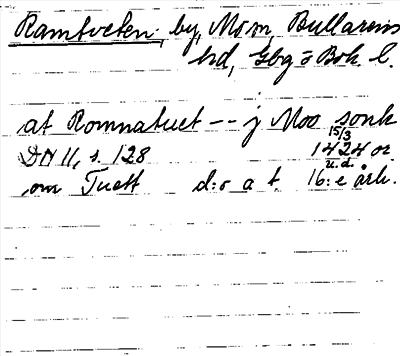 Ramtveten, by, Mo sn, Bullarens
hd, Gbg o Boh. l.
at Romnatuet -- j Moo sonk
15/3
DN II, s. 128 1424 or.
u. d.
om Tuett d:o a t. 16:e årh.